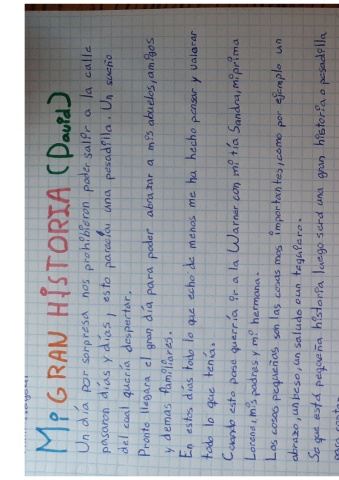 Mi GRAN HiSTORIA (David)
Un día por sorpresa nos prohibieron poder salir a la calle
pasaron días y días, esto parecía una pesadilla. Un sueño
del cual quería despertar.
Pronto llegara el gran día para poder abrazar a mis abuelos, amigos
y demas familiares.
En estos días todo lo que echo de menos me ha hecho pensar y valorar
todo lo que tenía.
Cuando esto pase querría ir a la Warner con mi tía Sandra, mi prima
Lorena, mis padres y mi hermana.
Las cosas pequeñas son las cosas mas importantes, como por ejemplo un
abrazo, un beso, un saludo o un tequiero.
Se que está pequeña historia luego será una gran historia o pesadilla
para contar